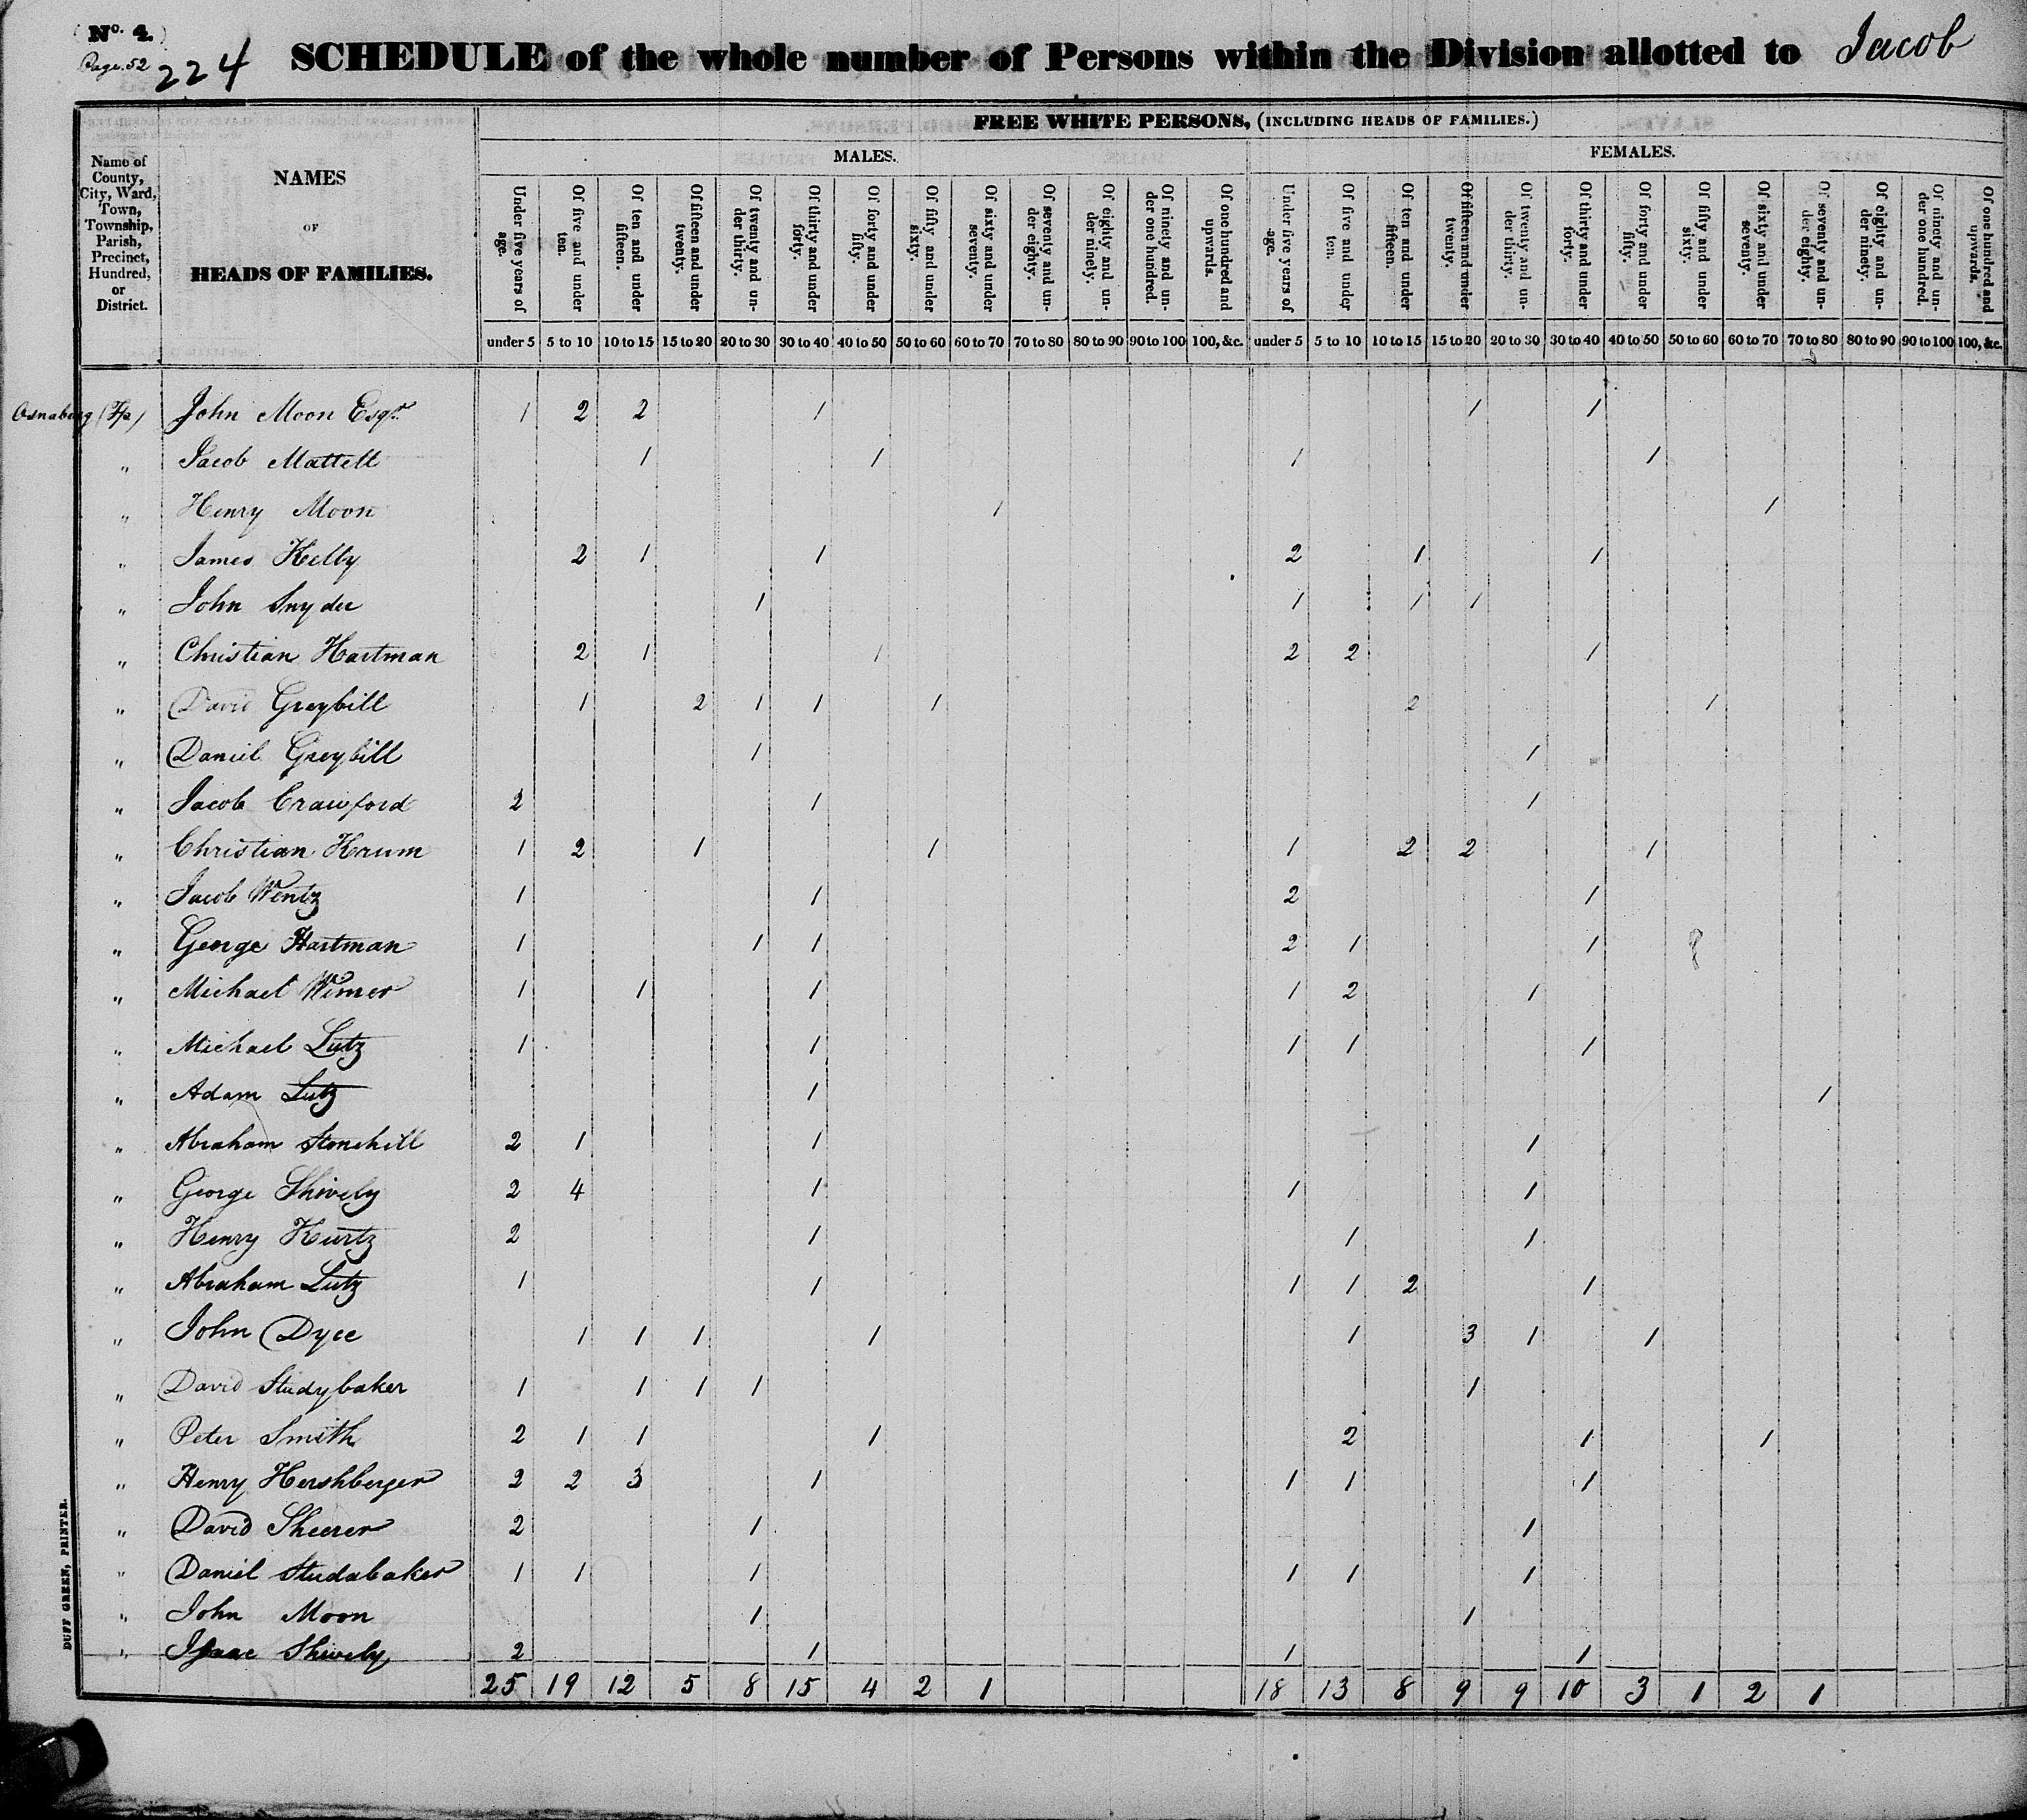 No. 4.
Page. 52
224 SCHEDULE of the whole number of Persons within the Division allotted to Jacob
FREE WHITE PERSONS, (INCLUDING HEADS OF FAMILIES.)
MALES. FEMALES.
Name of County, City, Ward, Town, Township, Parish, Precinct, Hundred, or District.
NAMES
OF
HEADS OF FAMILIES.
Under five years of age. Of five and under ten. Of ten and under fifteen. Of fifteen and under twenty. Of twenty and under thirty. Of thirty and under forty. Of forty and under fifty. Of fifty and under sixty. Of sixty and under seventy. Of seventy and under eighty. Of eighty and under ninety. Of ninety and under one hundred. Of one hundred and upwards. Under five years of age. Of five and under ten. Of ten and under fifteen. Of fifteen and under twenty. Of twenty and under thirty. Of thirty and under forty. Of forty and under fifty. Of fifty and under sixty. Of sixty and under seventy. Of seventy and under eighty. Of eighty and under ninety. Of ninety and under one hundred. Of one hundred and upwards.
under 5 5 to 10 10 to 15 15 to 20 20 to 30 30 to 40 40 to 50 50 to 60 60 to 70 70 to 80 80 to 90 90 to 100 100, &c. under 5 5 to 10 10 to 15 15 to 20 20 to 30 30 to 40 40 to 50 50 to 60 60 to 70 70 to 80 80 to 90 90 to 100 100, &c.
Osnaburg (Tp) John Moon Esqr. 1 2 2 1 1 1
" Jacob Mattell 1 1 1 1
" Henry Moon 1 1
" James Kelly 2 1 1 2 1 1
" John Snyder 1 1 1 1
" Christian Hartman 2 1 1 2 2 1
" David Greybill 1 2 1 1 1 2 1
" Daniel Greybill 1 1
" Jacob Crawford 2 1 1
" Christian Krum 1 2 1 1 1 2 2 1
" Jacob Wentz 1 1 2 1
" George Hartman 1 1 1 2 1 1
" Michael Wimer 1 1 1 1 2 1
" Michael Lutz 1 1 1 1 1
" Adam Lutz 1 1
" Abraham Stonehill 2 1 1 1
" George Shively 2 4 1 1 1
" Henry Kurtz 2 1 1 1
" Abraham Lutz 1 1 1 1 2 1
" John Dyce 1 1 1 1 1 3 1 1
" David Studybaker 1 1 1 1 1
" Peter Smith 2 1 1 1 2 1 1
" Henry Hershberger 2 2 3 1 1 1 1
" David Sheerer 2 1 1
" Daniel Studabaker 1 1 1 1 1 1
" John Moon 1 1
" Isaac Shively 2 1 1 1
25 19 12 5 8 15 4 2 1 18 13 8 9 9 10 3 1 2 1
DUFF GREEN, PRINTER.